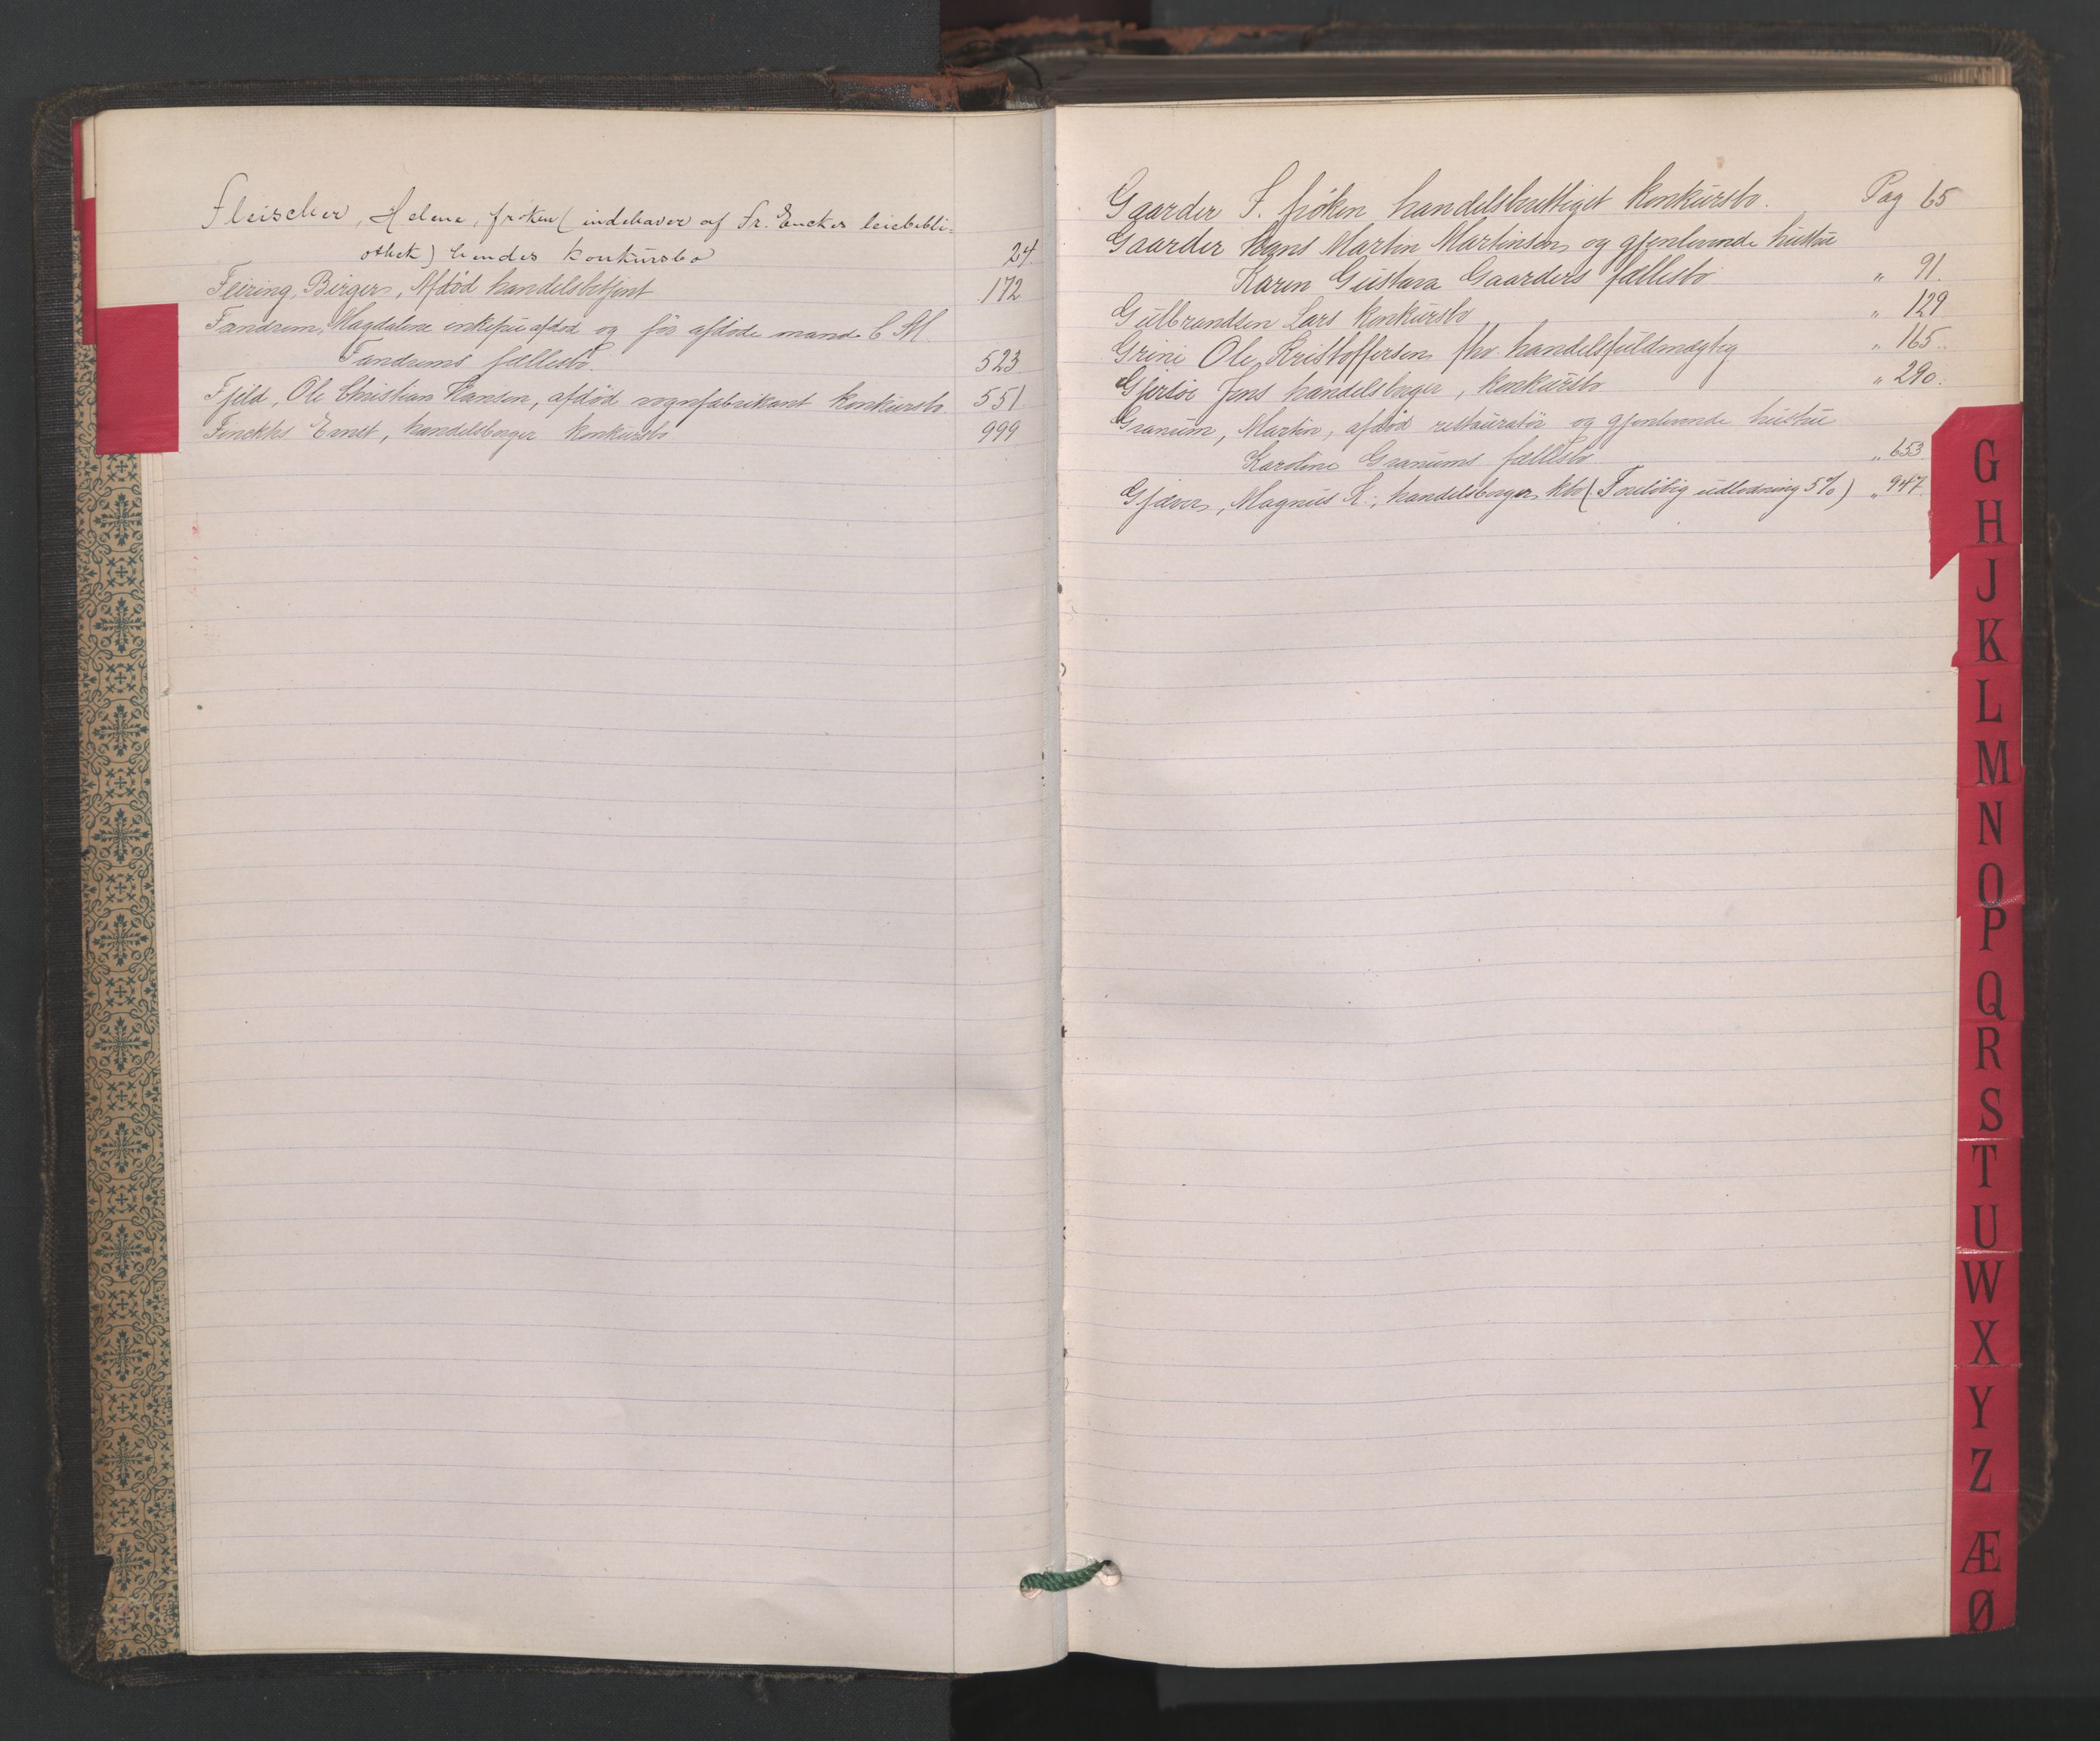 Fleischer, Helene, frøken (indehaver af Fr. Enckes leiebibli-
othek) hendes konkursbo 24.
Feiring, Birger, Afdød handelsbetjent 172.
Tandrem, Magdalene enkefru afdød og før afdøde mand C. M.
Tandrems fællesbo. 523
Fjeld, Ole Christian Hansen, afdød vognfabrikant konkursbo. 551
Finckhs Ernst, handelsborger konkursbo 999
Gaarder S. frøken handelsberettiget konkursbo. Pag 65
Gaarder Hans Martin Martinsen og gjenlevende hustru
Karen Gustava Gaarders fællesbo „ 91.
Gulbrandsen Lars konkursbo „ 129
Grini Ole Kristoffersen fhv. handelsfuldmægtig „ 165.
Gjersøe Jens handelsborger, konkursbo „ 290.
Granum, Martin, afdød restauratør og gjenlevende hustru
Karoline Granums fællesbo „ 653
Gjæver, Magnus K., handelsborger, kbo (Foreløbig udlodning 5%) „ 947.
G
H
J
K
L
M
N
O
P
Q
R
S
T
U
W
X
Y
Z
Æ
Ø